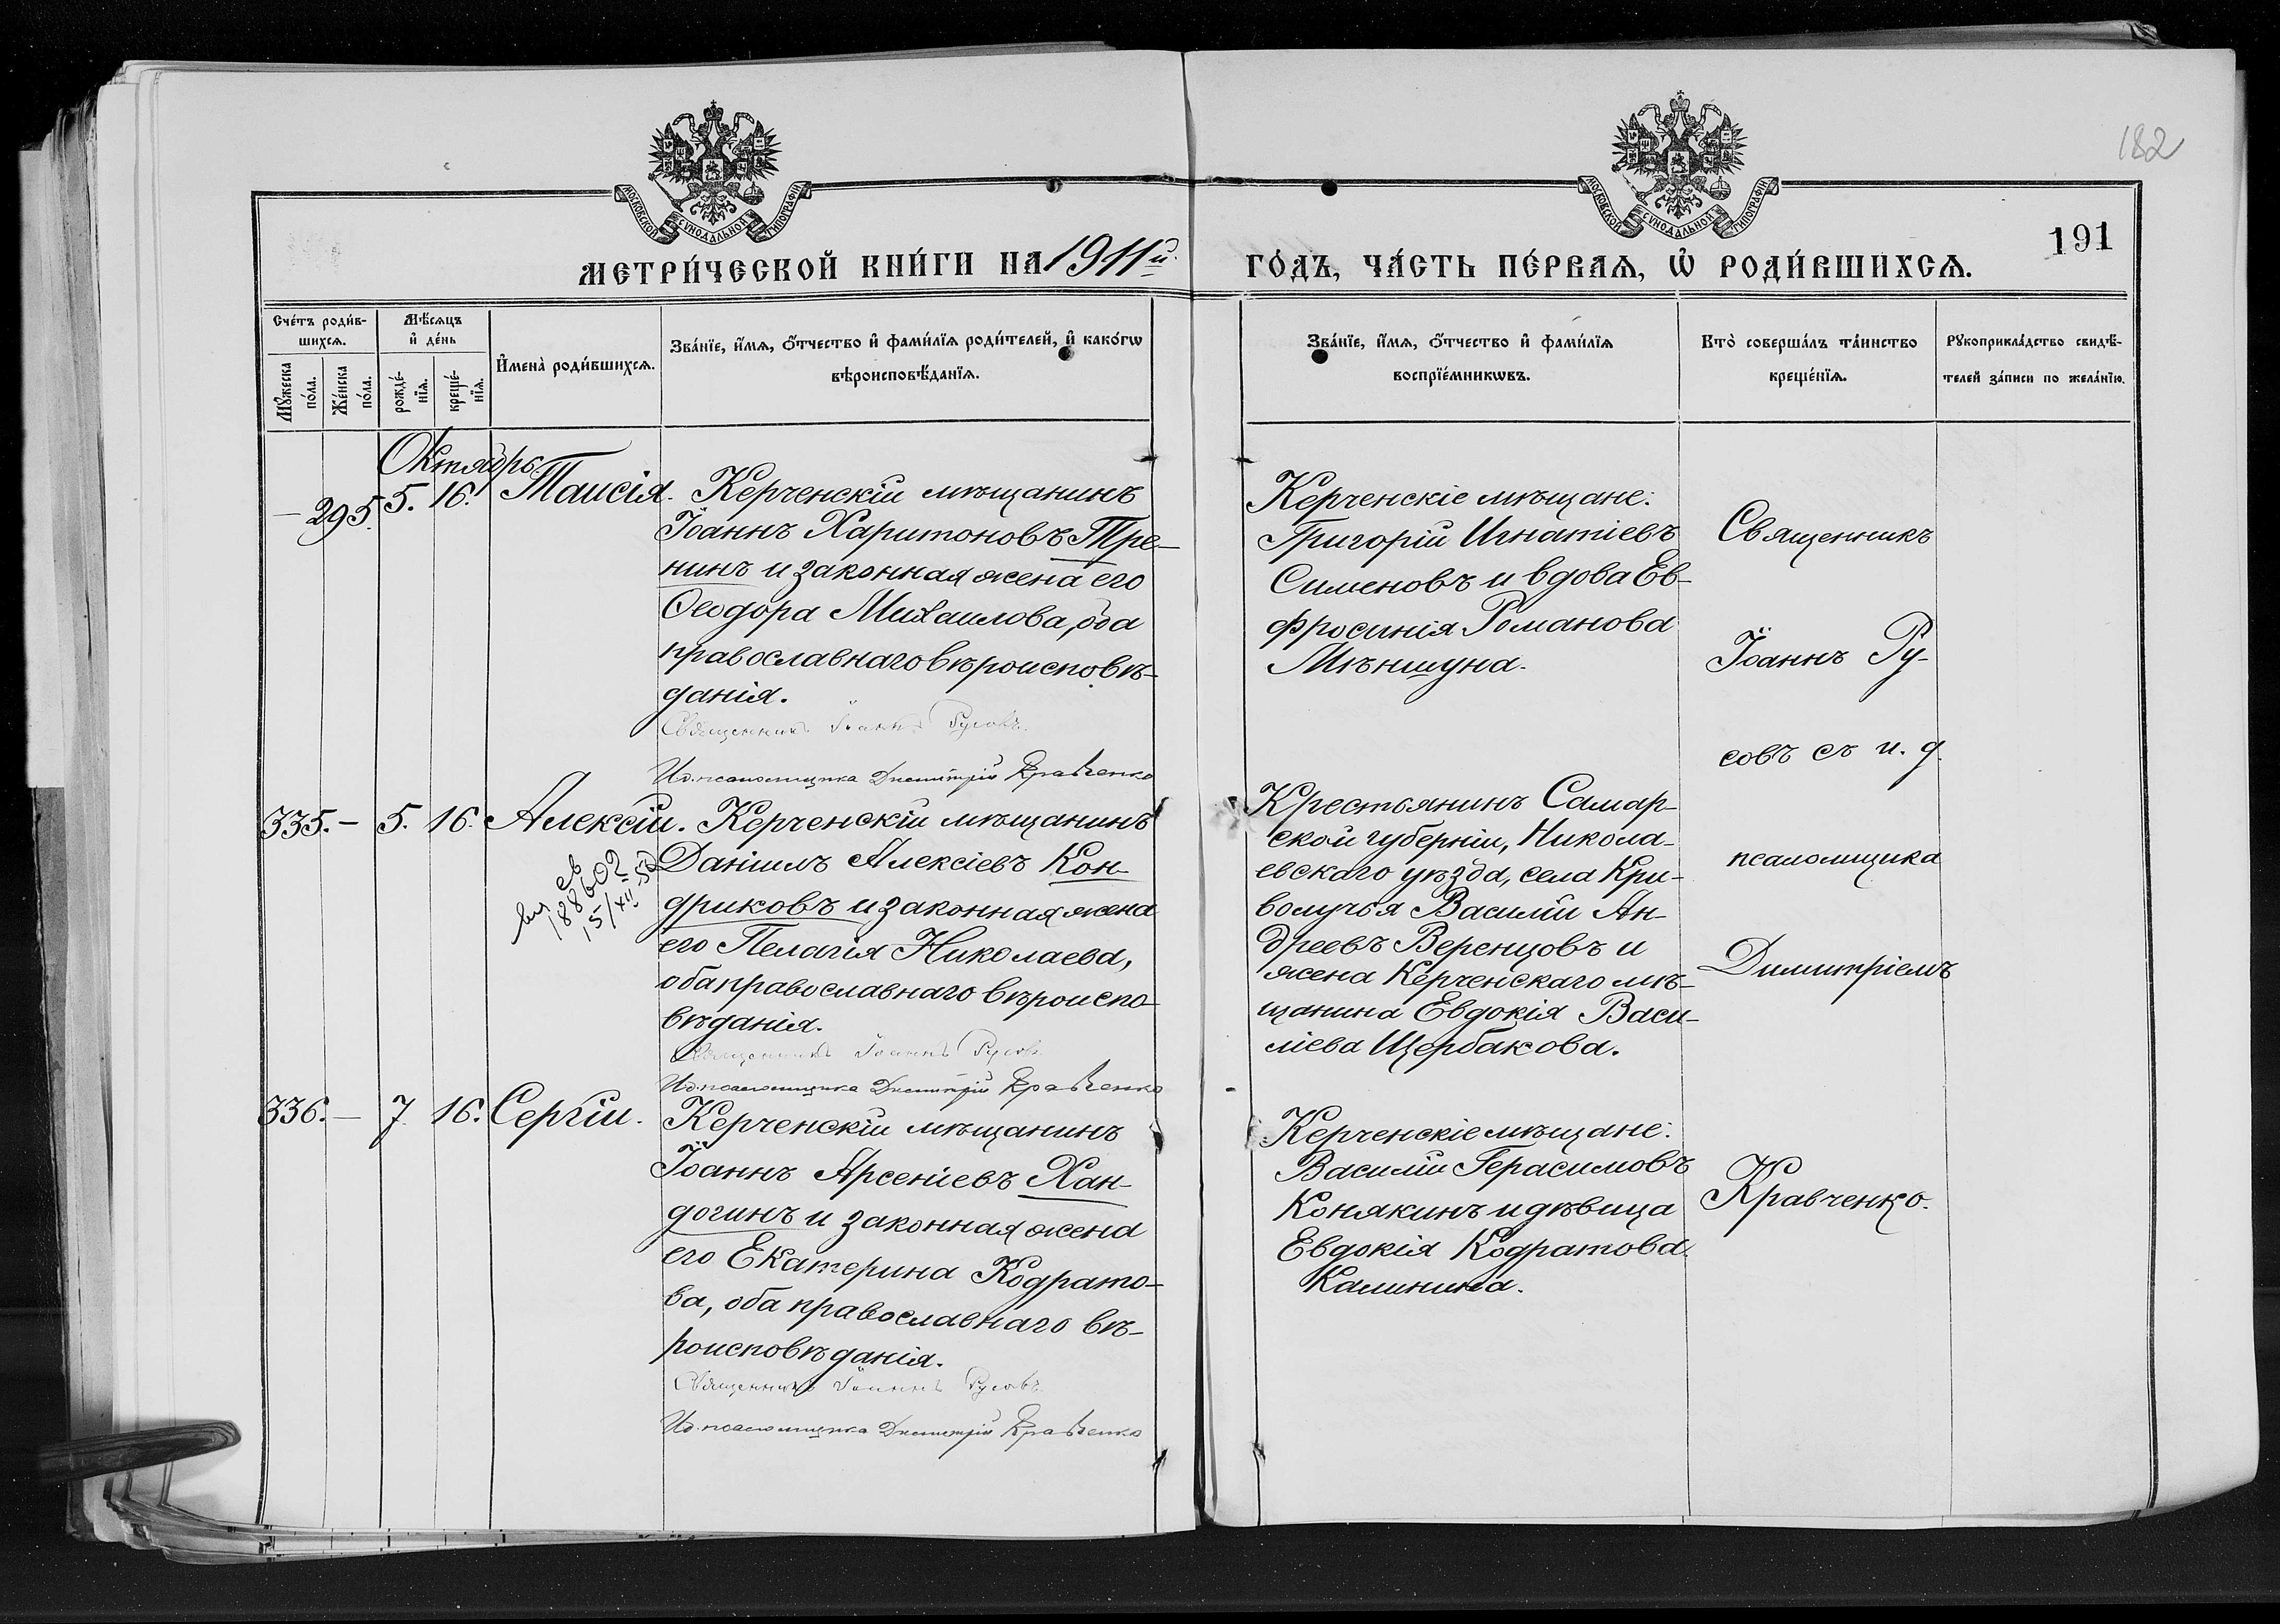 182
191
МОСКОВСКОЙ СѴНОДАЛЬНОЙ ТИПОГРАФІИ
МОСКОВСКОЙ СѴНОДАЛЬНОЙ ТИПОГРАФІИ
МЕТРИ́ЧЕСКОЙ КНИ́ГИ НА 1911й ГО́ДЪ, ЧА́СТЬ ПЕ́РВАѦ, Ѡ҆ РОДИ́ВШИХСѦ.
Сче́тъ роди́в-
шихсѧ.
Мꙋ́жеска
по́ла.
Же́нска
по́ла.
Мѣ́сѧцъ
и҆ де́нь
рожде́-
нїѧ.
креще́-
нїѧ.
И҆мена̀ роди́вшихсѧ.
Зва́нїе, и҆́мѧ, ѻ҆́тчество и҆ фами́лїѧ роди́телей, и҆ како́гѡ
вѣроисповѣ́данїѧ.
Зва́нїе, и҆́мѧ, ѻ҆́тчество и҆ фами́лїѧ
воспрїе́мникѡвъ.
Кто̀ соверша́лъ та́инство
креще́нїѧ.
Рꙋкоприкла́дство свидѣ́-
телей за́писи по жела́нїю.
Октябрь.
— 295. 5. 16. Таисія.
Керченскій мѣщанинъ
Іоаннъ Харитоновъ Тре-
нинъ и законная жена его
Ѳеодора Михаилова, оба
православнаго вѣроисповѣ-
данія.
Священникъ Іоаннъ Русовъ.
И.д. псаломщика Димитрій Кравченко
Керченскіе мѣщане:
Григорій Игнатіевъ
Сименовъ и вдова Ев-
фросинія Романова
Священникъ
Іоаннъ Ру-
совъ съ и. д.
псаломщика
Димитріемъ
Кравченко.
335. — 5. 16. Алексій.
188602
15/XII-50
Керченскій мѣщанинъ
Даніилъ Алексіевъ Кон-
дриковъ и законная жена
его Пелагія Николаева,
оба православнаго вѣроиспо-
вѣданія.
Священникъ Іоаннъ Русовъ.
И.д. псаломщика Димитрій Кравченко
Крестьянинъ Самар-
ской губерніи, Никола-
евскаго уѣзда, села Кри-
волучья Василій Ан-
дреевъ Веренцовъ и
жена Керченскаго мѣ-
щанина Евдокія Васи-
ліева Щербакова.
336. — 7 16. Сергій.
Керченскій мѣщанинъ
Іоаннъ Арсеніевъ Хан-
догинъ и законная жена
его Екатерина Кодрато-
ва, оба православнаго вѣ-
роисповѣданія.
Священникъ Іоаннъ Русовъ.
И.д. псаломщика Димитрій Кравченко
Керченскіе мѣщане:
Василій Герасимовъ
Конякинъ и дѣвица
Евдокія Кодратова
Калинина.